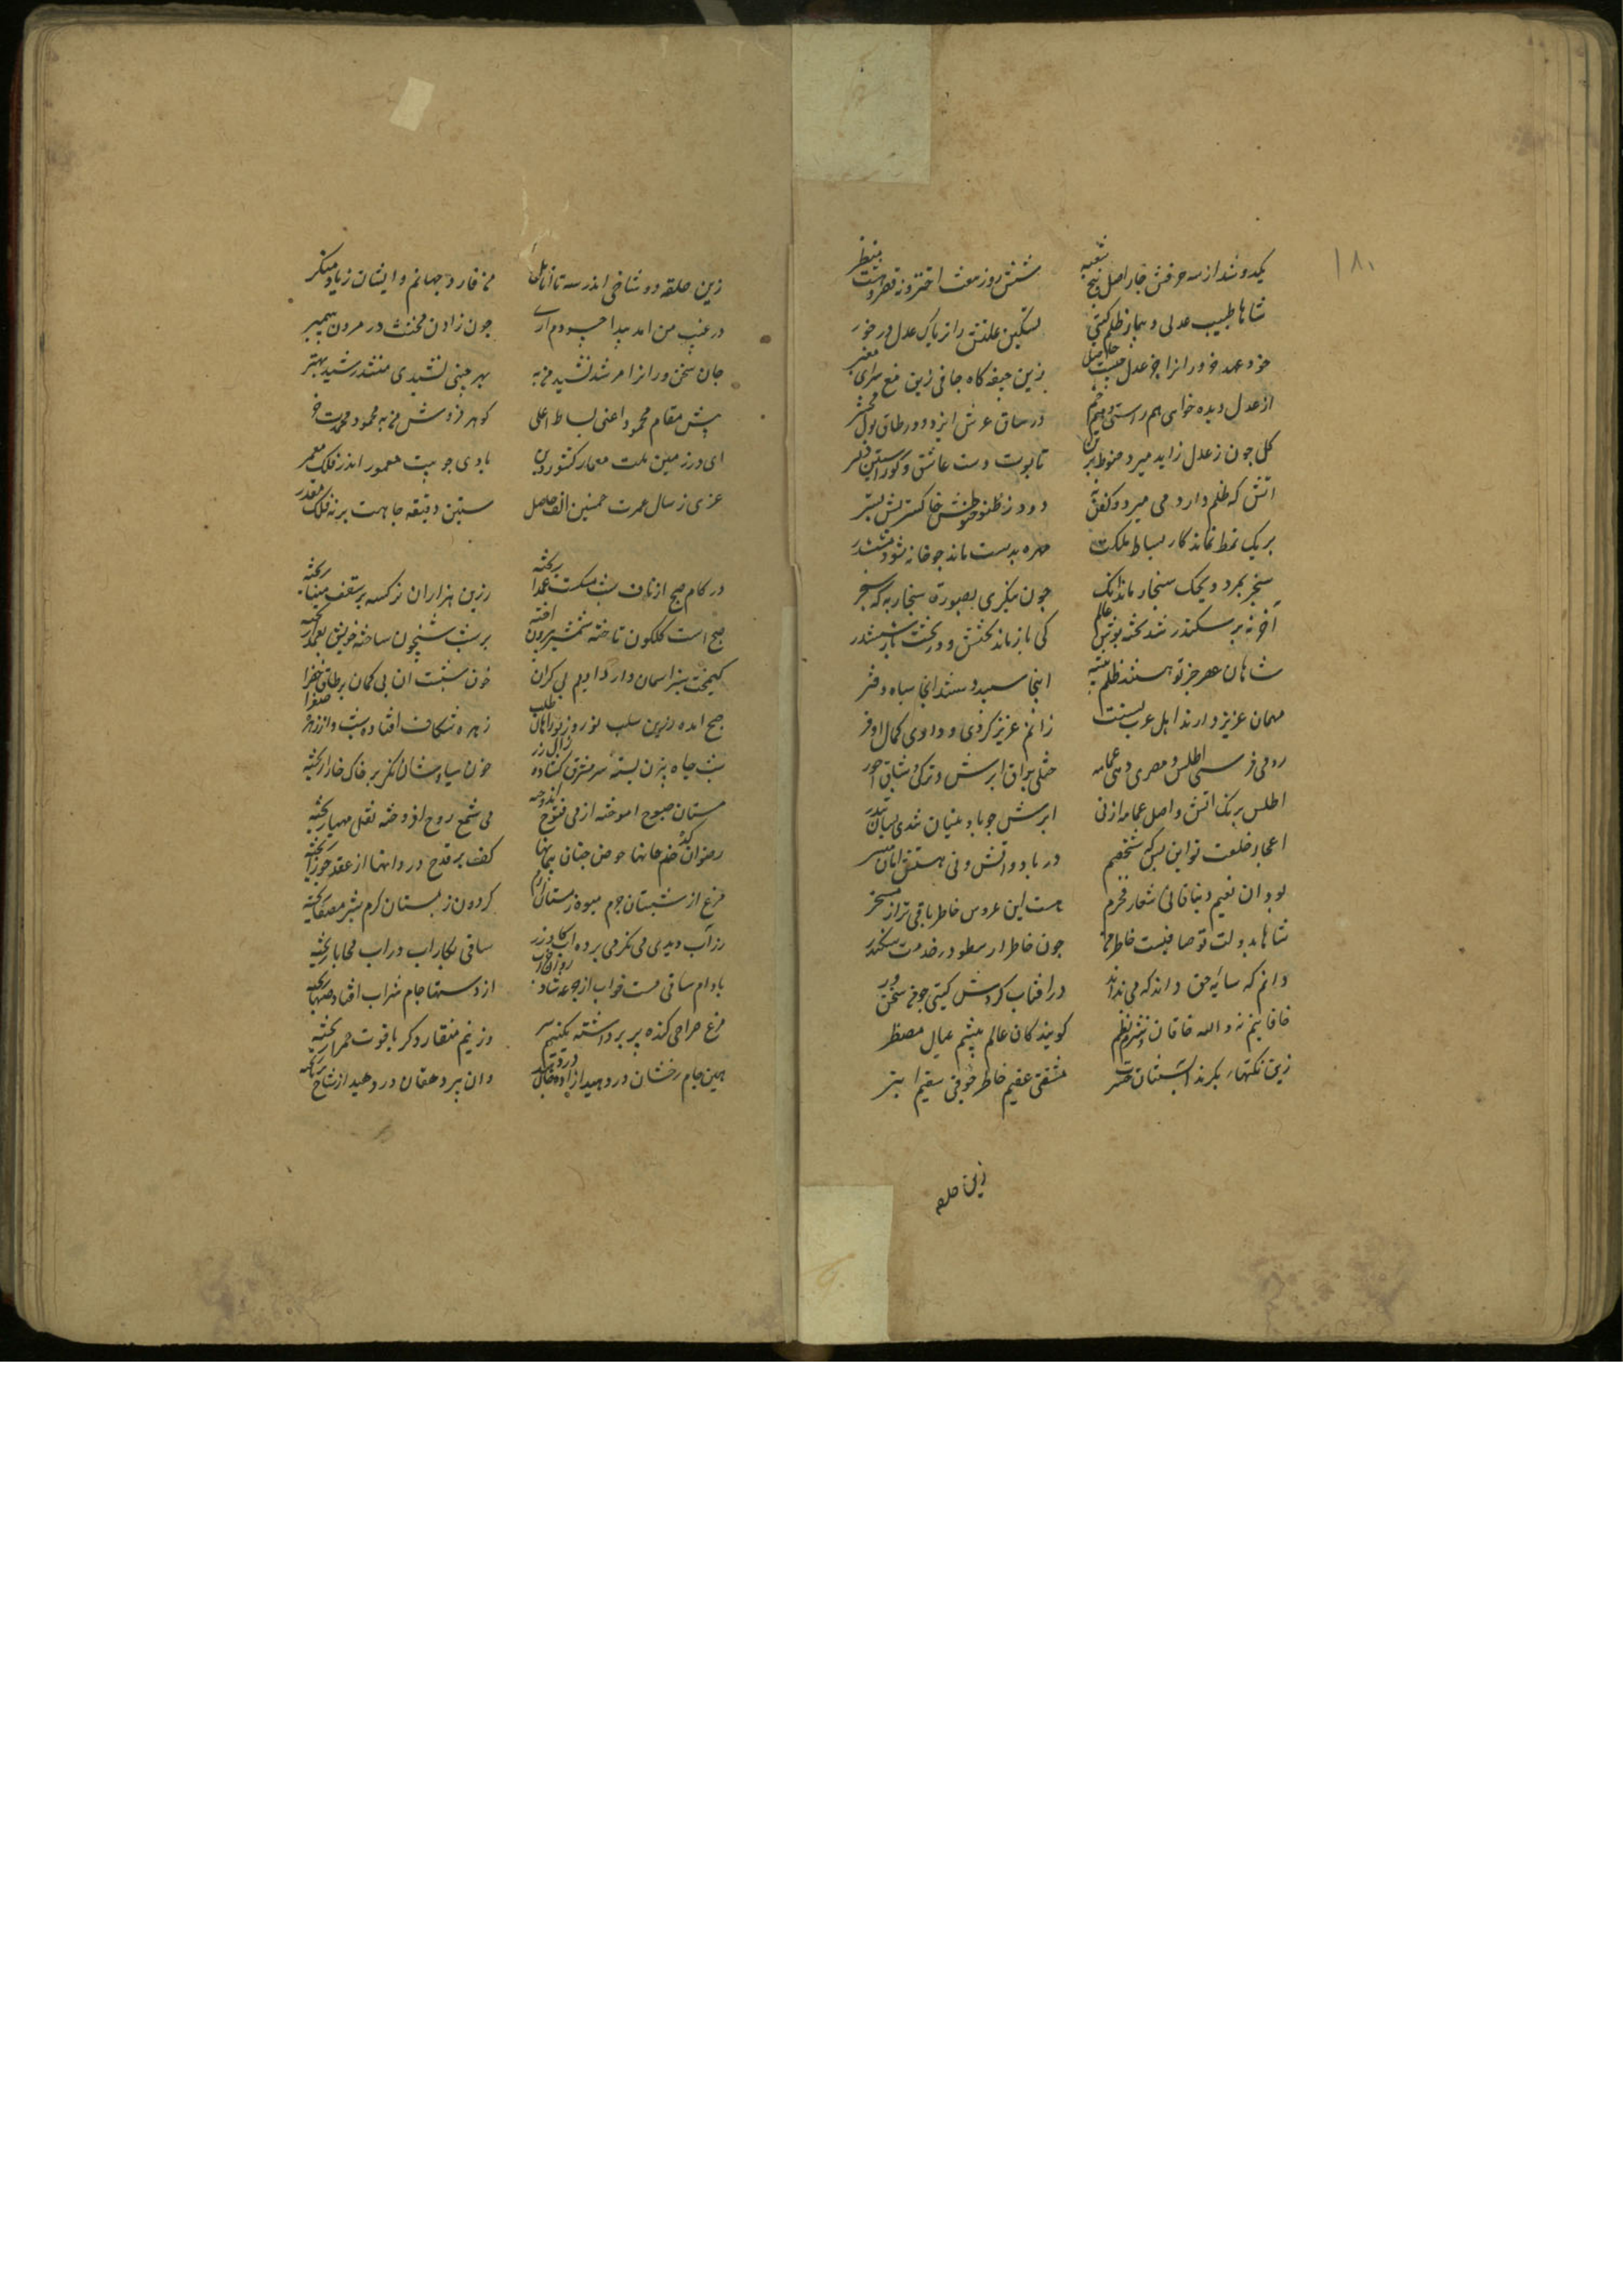 ۱۸۰
یکدو شد از سه حرفش چار اصل و پنج شعبه
شش روز و هفت اختر و نه قصر و هشت منظر
شاها طبیب عدلی و بیمار ظلم کیتی
تسکین علتش را تریاک عدل در خور
از عدل دیده خواهی هم راستی و هم خم
در ساق عرش ایزد و در طاق پول محشر
کل چون ز عدل زاید میرد حنوط بر تن
تابوت دست عاشق و کور آستین دلبر
اتش که ظلم دارد می میرد و کفن نی
دود ز ظلمش حنوطش خاکسترش بستر
بر یک نمط نماند کار بساط ملکت
مهره بدست ماند چو خانه شود ششدر
سنجر بمرد و یحک سنجار ماند اینک
چون بنگری بصورة سنجار به که سنجر
آخر نه بر سکندر شد تخته بوتس عالم
کی باز ماند تختش و در تخت باز ششدر
شاهان عصر جز تو هستند ظلم پیشه
اینجا سپید دستند انجا سیاه دفتر
مهمان عزیز دارند اهل عرب بسنت
زانم عزیز کردی و دادی کمال اوفر
رومی فرستی اطلس و مصری دهی عمامه
ختلی براق ابرش و ترکی وشاق احور
اطلس برنک اتش و اصل عمامه از نی
ابرش چو باد نیسان تندی بسان تندر
اعجاز خلعت تو این بس که شخصم
در باد و اتش و نی هستش امان میسر
بود ان نعیم دنیا فانی شمار نخرم
هست این عروس خاطر باقی تراز مسخر
شاها بدولت تو صافیست خاطر من
چون خاطر ارسطو در خدمت سکندر
دانم که سایه حق داند که می نداند
در افتاب کردش کیتی چو من سخن ور
خاقانیم نه والله خاقان نثر و نظم
کویندکان عالم پیشم عیال مضطر
زین نکتهاء بکرند ابستنان حسرت
مشتی عقیم خاطر جوقی سقیم ابتر
زین حلقه
زین حلقه دو شاخی اندر سه تا اناملی
من فارد جهانم و ایشان زیاد منکر
در غیب من امد پیدا حسودم آری
چون زادن مخنث در مردن پیمبر
جان سخن ورانرا مرشد نشید من به
بهر چنین نشیدی منشد رشید بهتر
پیش مقام محمود اعنی بساط اعلی
کوهر فروش من به محمود محمدت خر
ای در زمین ملت معمار کشور دین
بادی چو بیت معمور اندر فلک معمر
عزی ز سال عمرت خمسین الف حاصل
ستین دقیقه جاهت بر نه فلک مقدر
در کام صبح از ناف شب مشکست عمدا ریخته
زرین هزاران نرکسه بر سقف مینا ریخته
صبح است کلکون تاخته شمشیر بیرون اخته
بر شب شبیخون ساخته خونش بعمدا ریخته
کیمخت سبز اسمان دارد ادیم بی کران
خون شبست ان بی کمان بر طاق خضرا ریخته
صبح امده زرین سلب نوروز نوراهان طلب
زهره شکاف افتاده شب و از زهره صفرا ریخته
شب چاه بیژن بسته سر مشرق کشاده زال زر
خون سیاوشان نکر بر خاک خارا ریخته
مستان صبوح اموخته از می فتوح اندوخته
می شمع روح افروخته نقل مهیا ریخته
رضوان کده خم خانها حوض جنان پیمانها
کف بر قدح دردانها از عقد جوزا ریخته
مرغ از شبستان حرم میوه ز بستان ارم
کردون ز پستان کرم شیر مصفا ریخته
زر آب دیدی می نکر می برده آب کار زر
ساقی بکار آب در آب محابا ریخته
بادام ساقی مست خواب از جرعه شادروان خراب
از دستها جام شراب افتاده صهبا ریخته
مرغ صراحی کنده پر برداشته یکنیم سر
وز نیم منقار دکر یاقوت حمرا ریخته
هین جام رخشان در دهید ازاده را جان در دهید
وان پیر دهقان در دهید از شاخ برنا ریخته